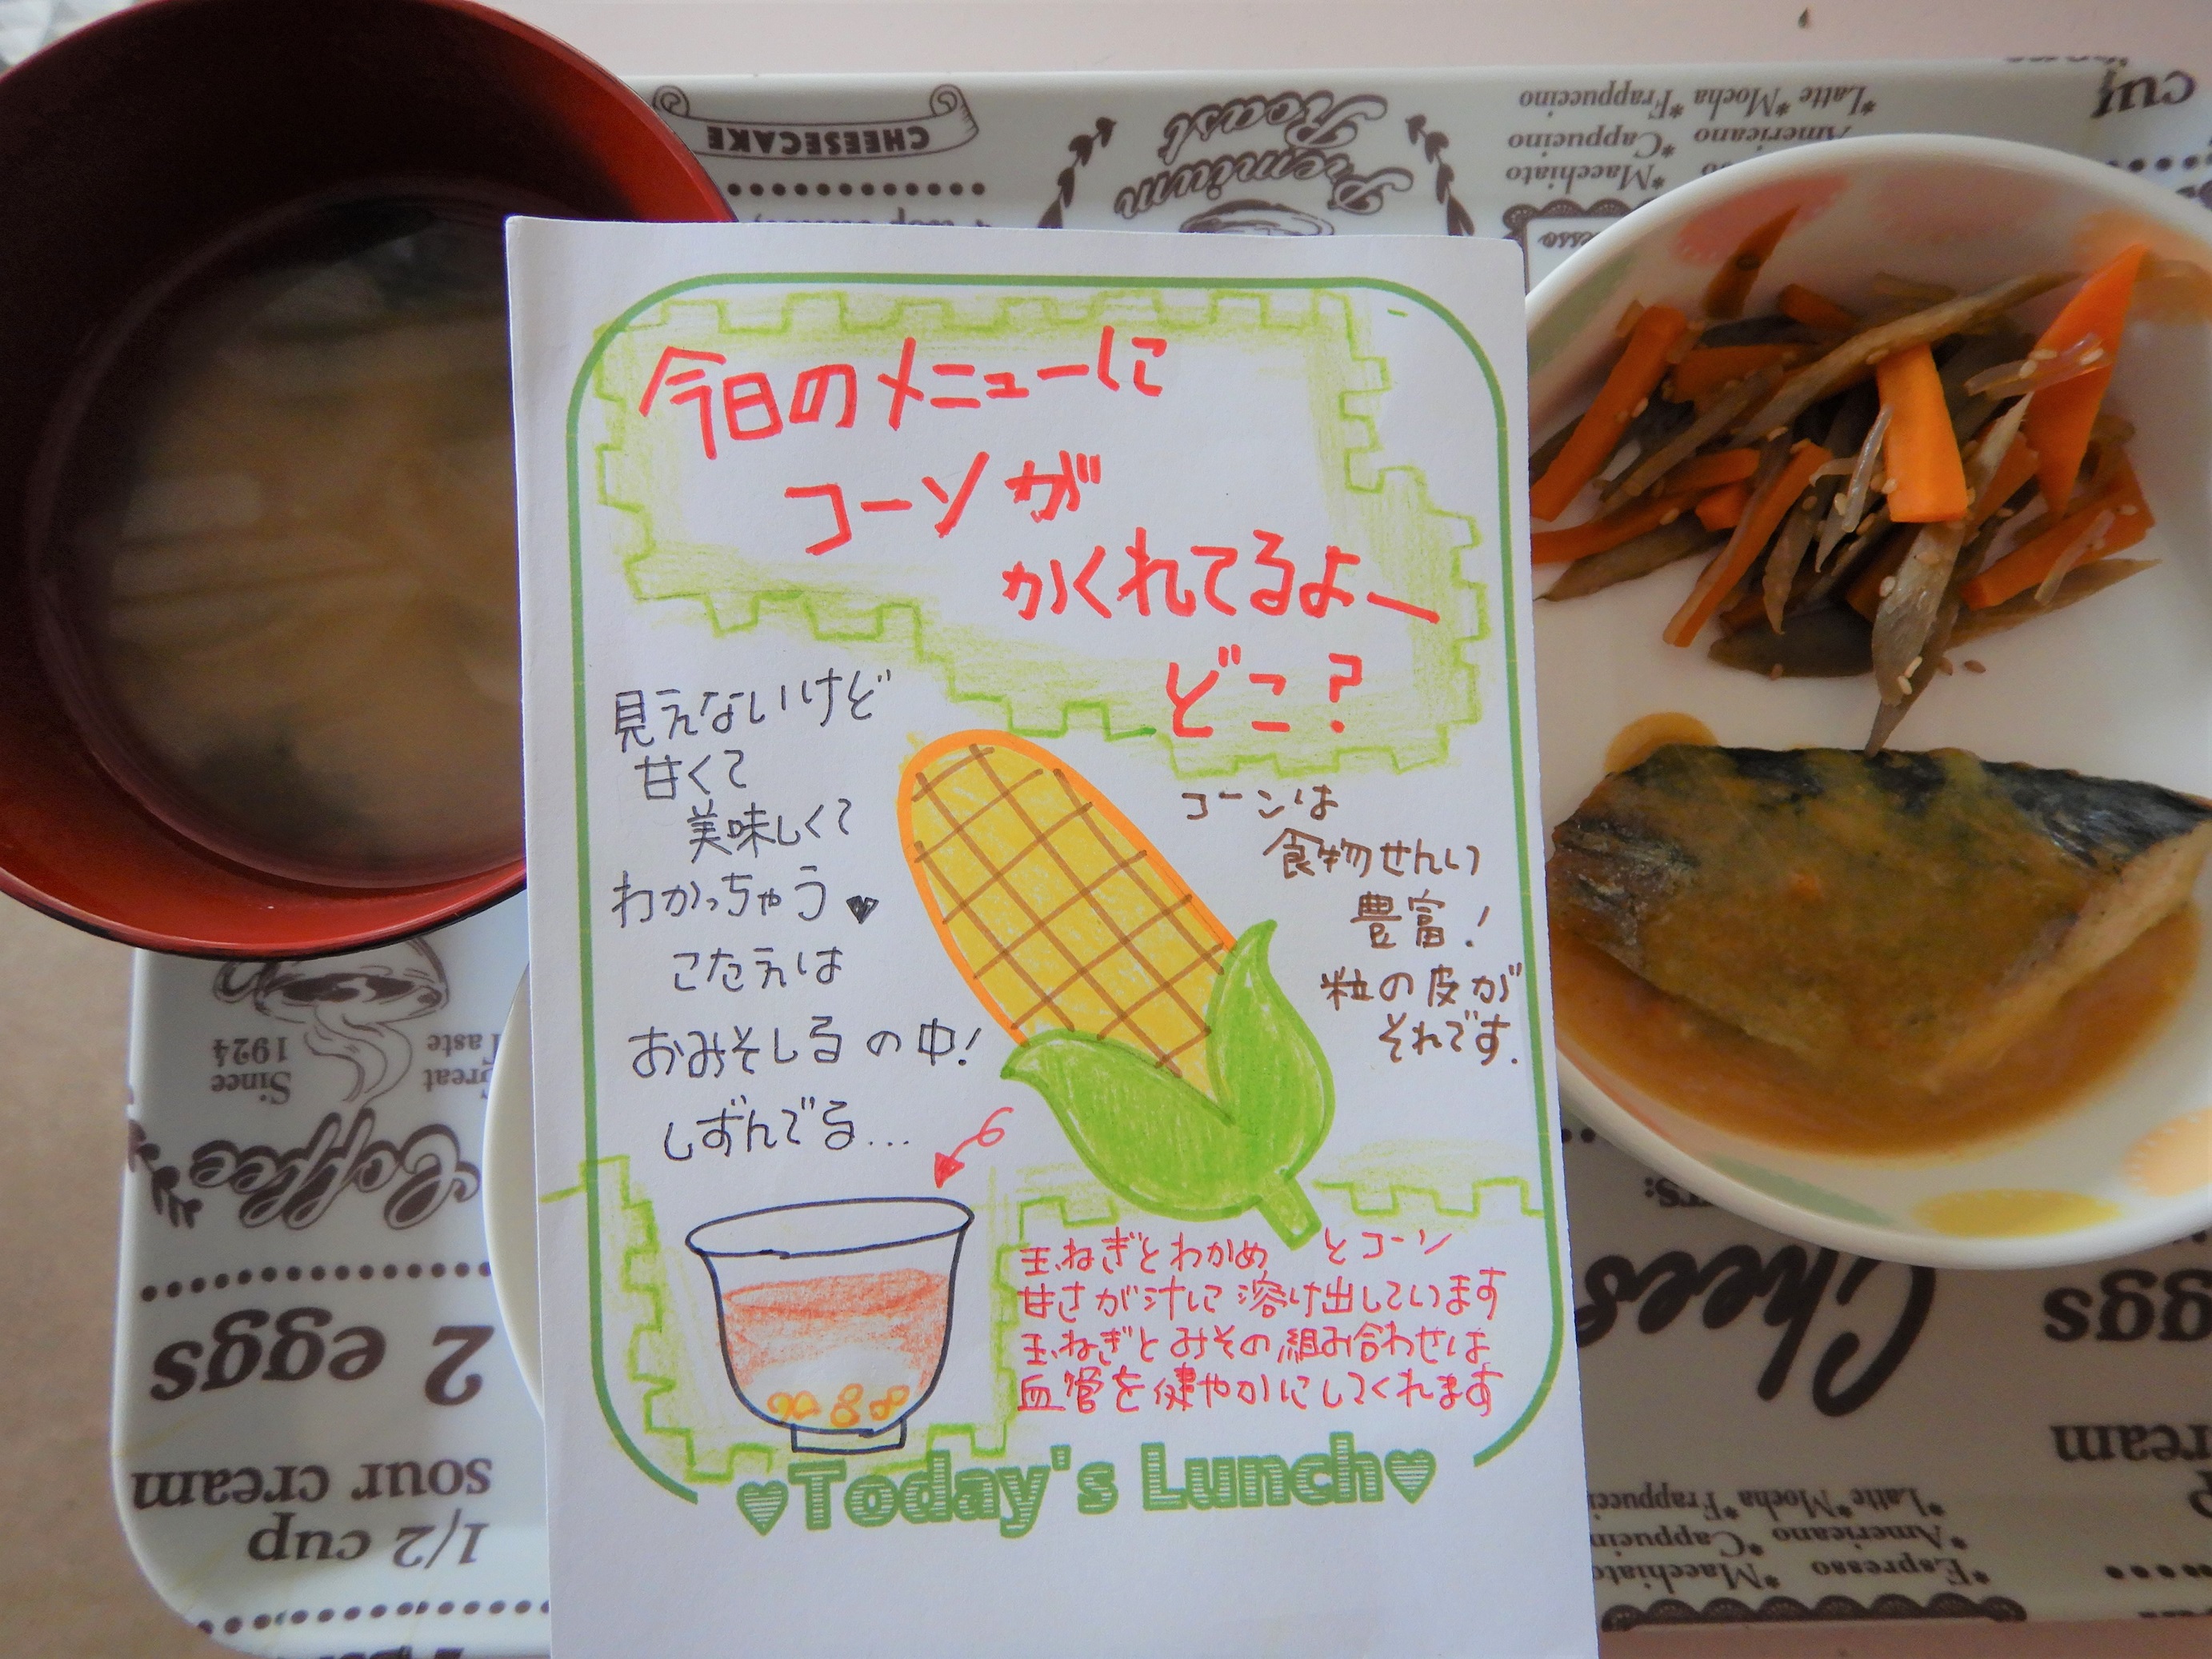 今日のメニューに
コーンが
かくれてるよー
どこ?
見えないけど
甘くて
美味しくて
わかっちゃう♥
こたえは
おみそしるの中!
しずんでる...
コーンは
食物せんい
豊富!
粒の皮が
それです.
玉ねぎとわかめとコーン
甘さが汁に溶け出しています
玉ねぎとみその組み合わせは
血管を健やかにしてくれます
♥Today's Lunch♥
CHEESECAKE
Premium
Roast
*Latte *Mocha *Frappuccino
Americano *Cappucino
*Macchiato
cup
Since
1924
Great
Taste
Coffee
2 eggs
1/2 cup
sour cream
Chees
eggs
*Espresso *Macchiato
*Americano *Cappucin
*Latte *Mocha *Frappucci